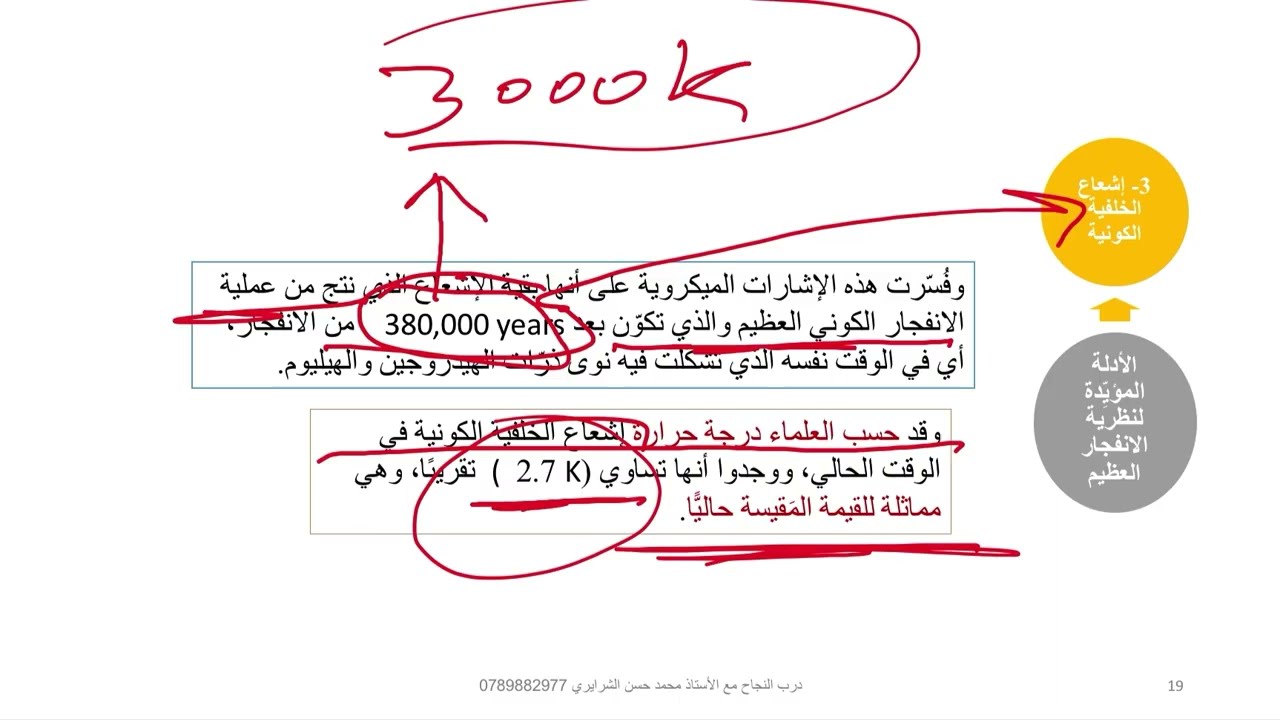 3000K
3- إشعاع
الخلفية
الكونية
وفُسّرت هذه الإشارات الميكروية على أنها بقية الإشعاع الذي نتج من عملية
الانفجار الكوني العظيم والذي تكوّن بعد 380,000 years من الانفجار،
أي في الوقت نفسه الذي تشكلت فيه نوى ذرّات الهيدروجين والهيليوم.
الأدلة
المؤيّدة
لنظرية
الانفجار
العظيم
وقد حسب العلماء درجة حرارة إشعاع الخلفية الكونية في
الوقت الحالي، ووجدوا أنها تساوي (2.7 K ) تقريبًا، وهي
مماثلة للقيمة المَقيسة حاليًّا.
درب النجاح مع الأستاذ محمد حسن الشرايري 0789882977
19